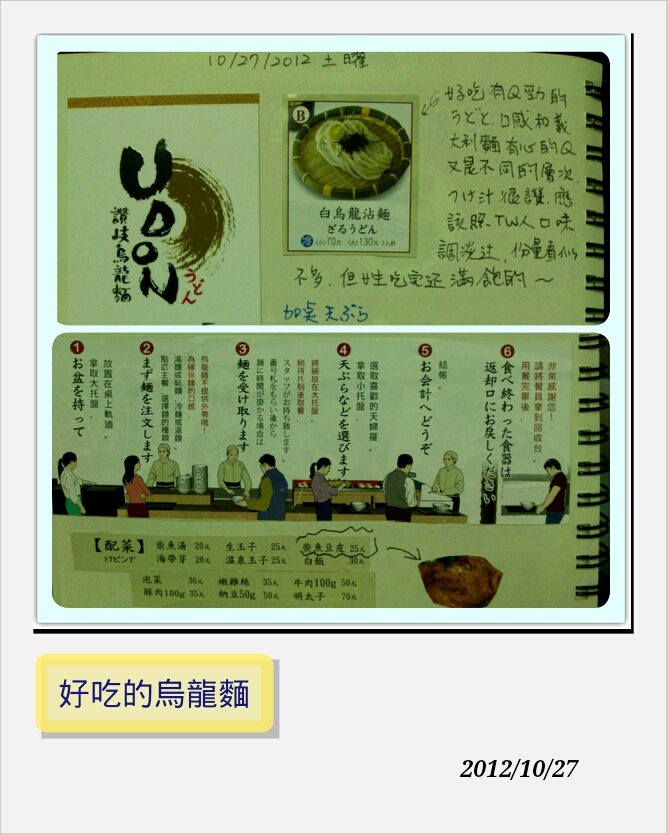 10/27/2012 土曜
UDON
讚岐烏龍麵
うどん
B
白烏龍沾麵
ざるうどん
冷 (小)70元 (大)130元 2人份
好吃有Q勁的
うどと.口感和義
大利麵有心的Q
又是不同的層次.
つけ汁很讚.應
該照.TW人口味
調淡过,份量看似
不多.但姓吃完还滿飽的~
加点天ぷら
1
お盆を持って
拿取大托盤,
放置在桌上軌道。
2
まず麺を注文します
點選主餐、選擇麵的種類
湯麵或乾麵、冷麵或溫麵。
為確保麵的口感,
烏龍麵不提供外帶哦!
3
麺を受け取ります
麺に時間が掛かる場合は
番号札をもらい後から
スタッフがお持ち致します。
稍待片刻後取餐,
將碗放在大托盤。
4
天ぷらなどを選びます
拿取小托盤,
選取喜歡的天婦羅。
5
お会計へどうぞ
結帳。
6
食べ終わった食器は
返却口にお戻しください
用餐完畢後,
請將餐具拿到回收台。
非常感謝您!
【配菜】 柴魚湯 20元 生玉子 25元 柴魚豆皮 25元
トッピング 海帶芽 20元 溫泉玉子 25元 白飯 30元
泡菜 30元 嫩雞絲 35元 牛肉100g 50元
豚肉100g 35元 納豆50g 50元 明太子 70元
好吃的烏龍麵
2012/10/27